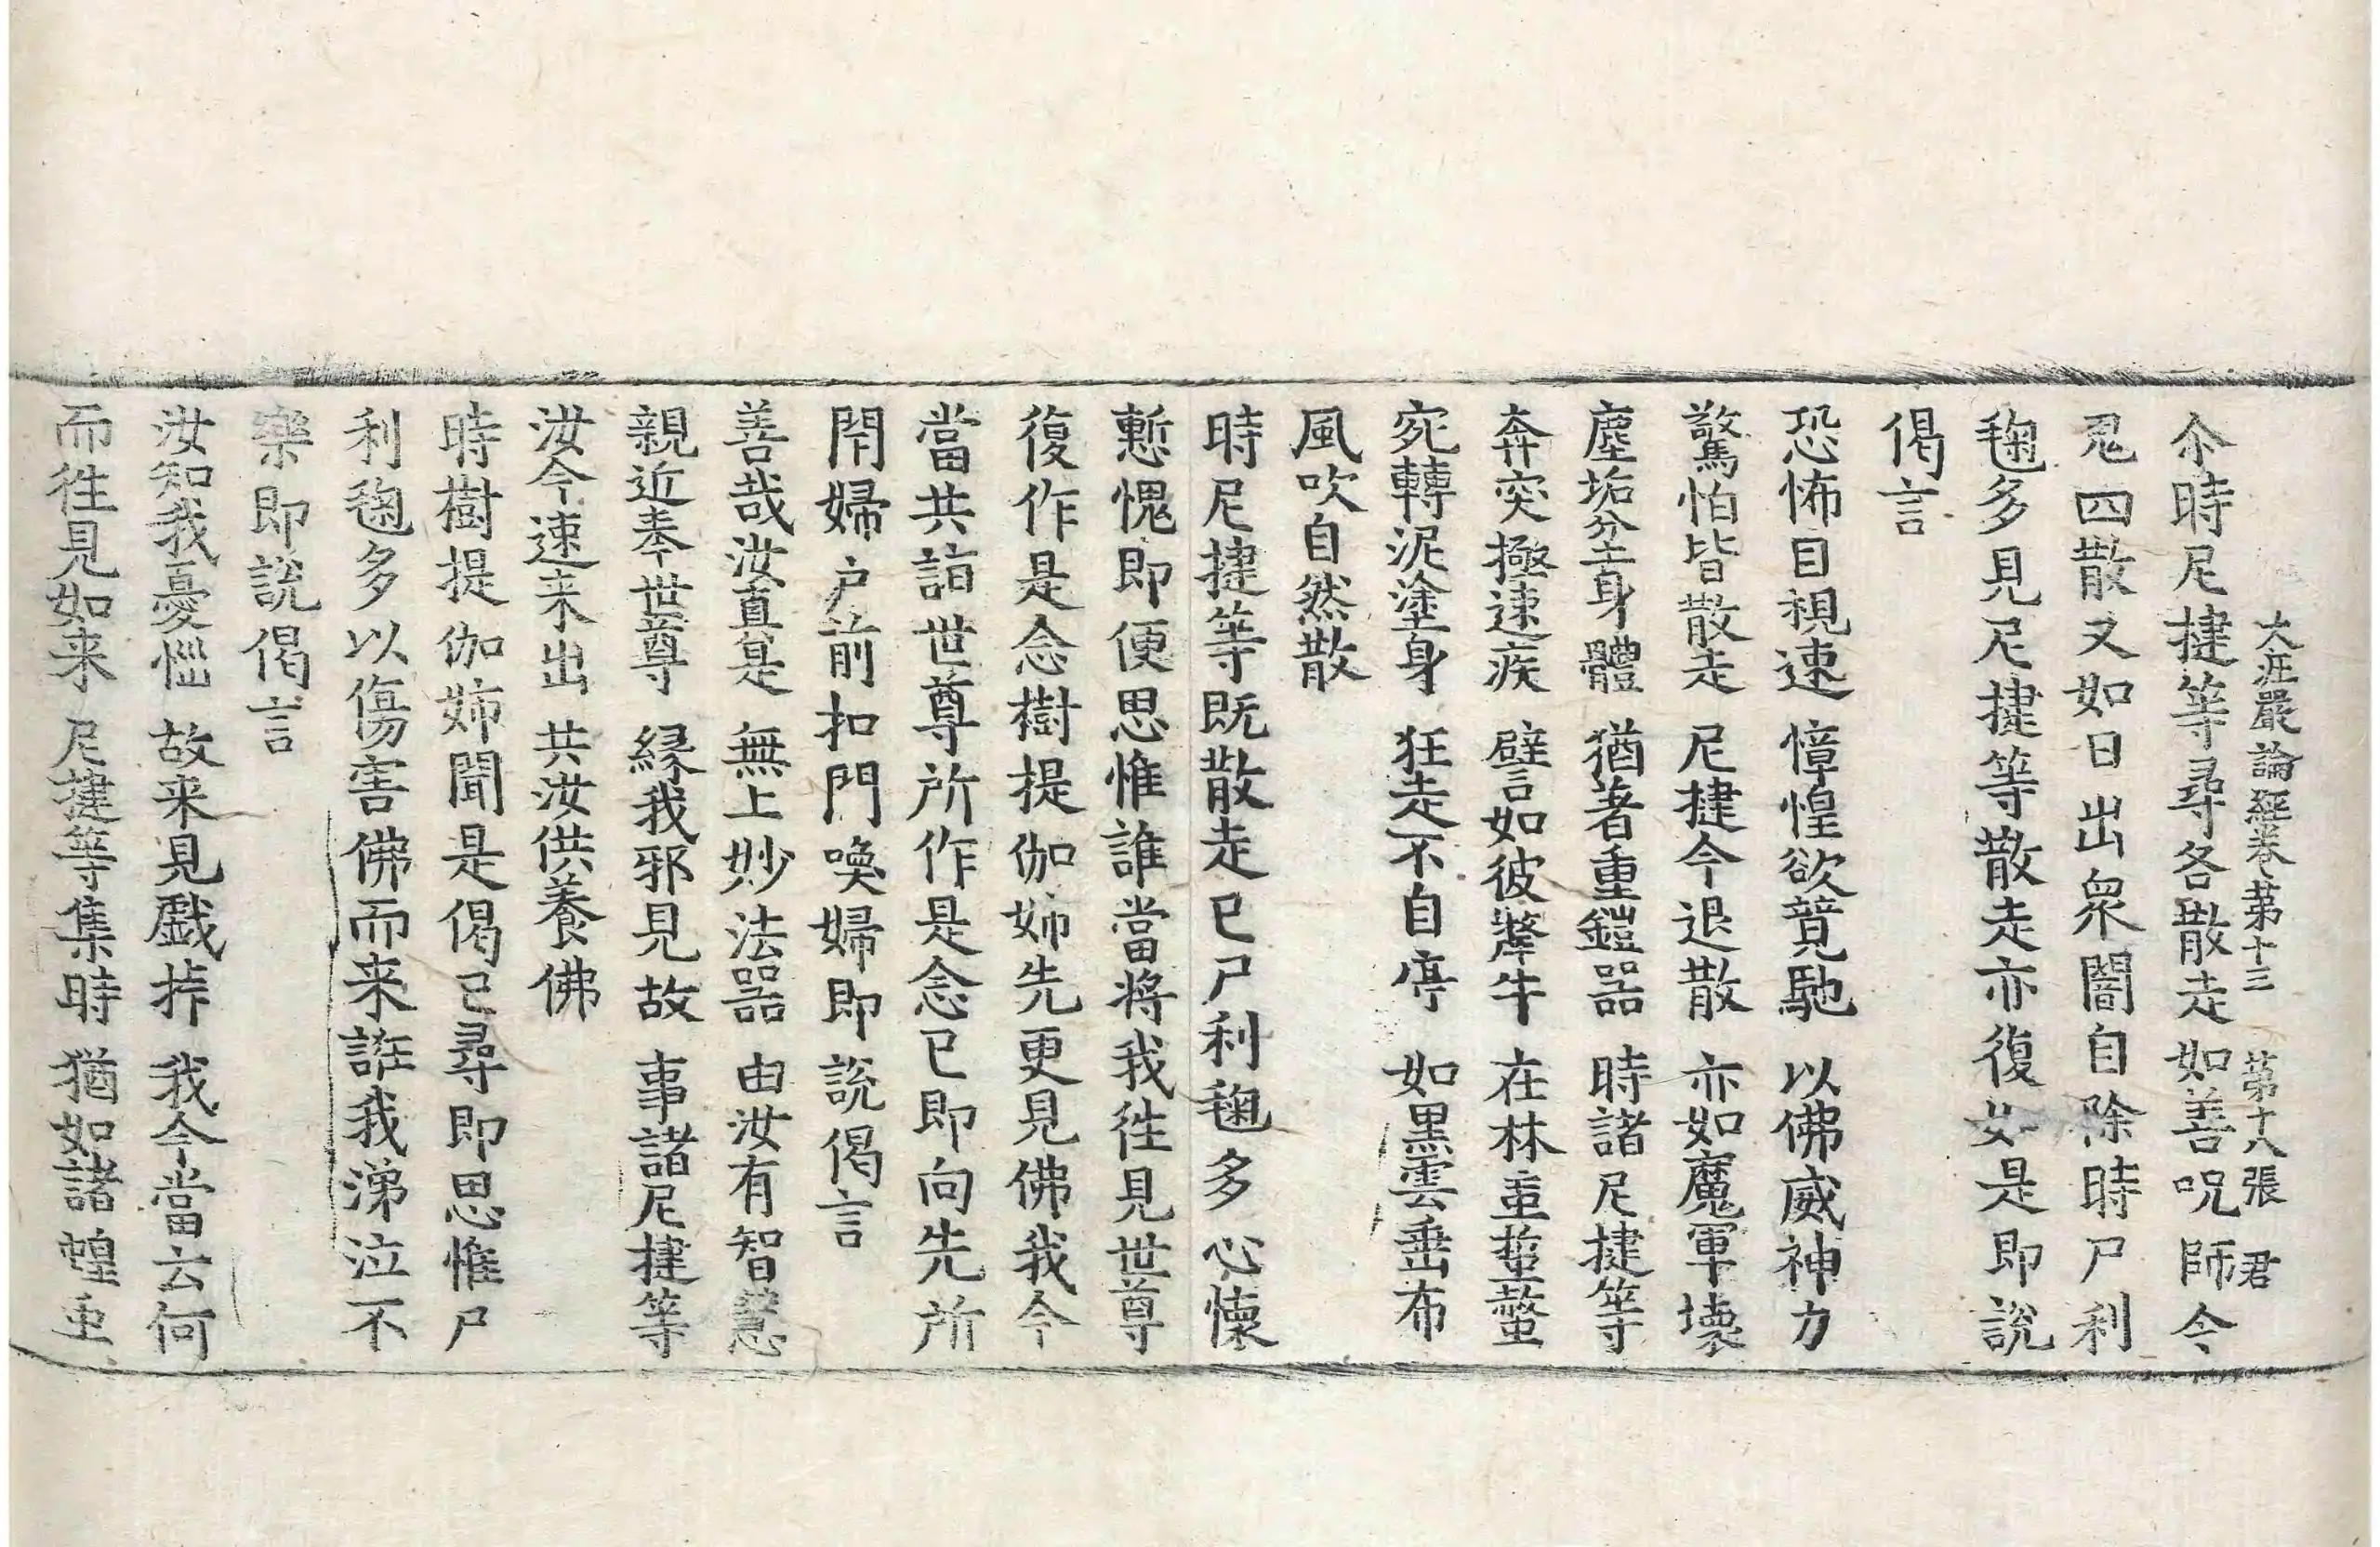 大疟嚴論経卷苐十三 苐十八張 君
尒時尼揵等尋各散走如善呪師令
鬼四散又如日出衆闇自除時尸利
毱多見尼揵等散走亦復如是即說
偈言
恐怖目視速 慞惶欲競馳 以佛威神力
驚怕皆散走 尼揵今退散 亦如魔軍壊
塵垢坌身體 猶著重鎧器 時諸尼揵等
奔突極速疾 譬如彼犛牛 在林䖝蜇螫
宛轉泥塗身 狂走不自停 如黒雲垂布
風吹自然散
時尼揵等既散走已尸利毱多心懐
慙愧即便思惟誰當將我徃見世尊
復作是念樹提伽姉先更見佛我今
當共詣世尊所作是念已即向先所
閇婦户前扣門喚婦即說偈言
善哉汝真是 無上妙法器 由汝有智慧
親近奉世尊 縁我邪見故 事諸尼揵等
汝今速来出 共汝供養佛
時樹提伽姉聞是偈已尋即思惟尸
利毱多以傷害佛而来誑我涕泣不
樂即說偈言
汝知我憂惱 故来見戲㧗 我今當云何
而徃見如来 尼揵等集時 猶如諸蝗䖝